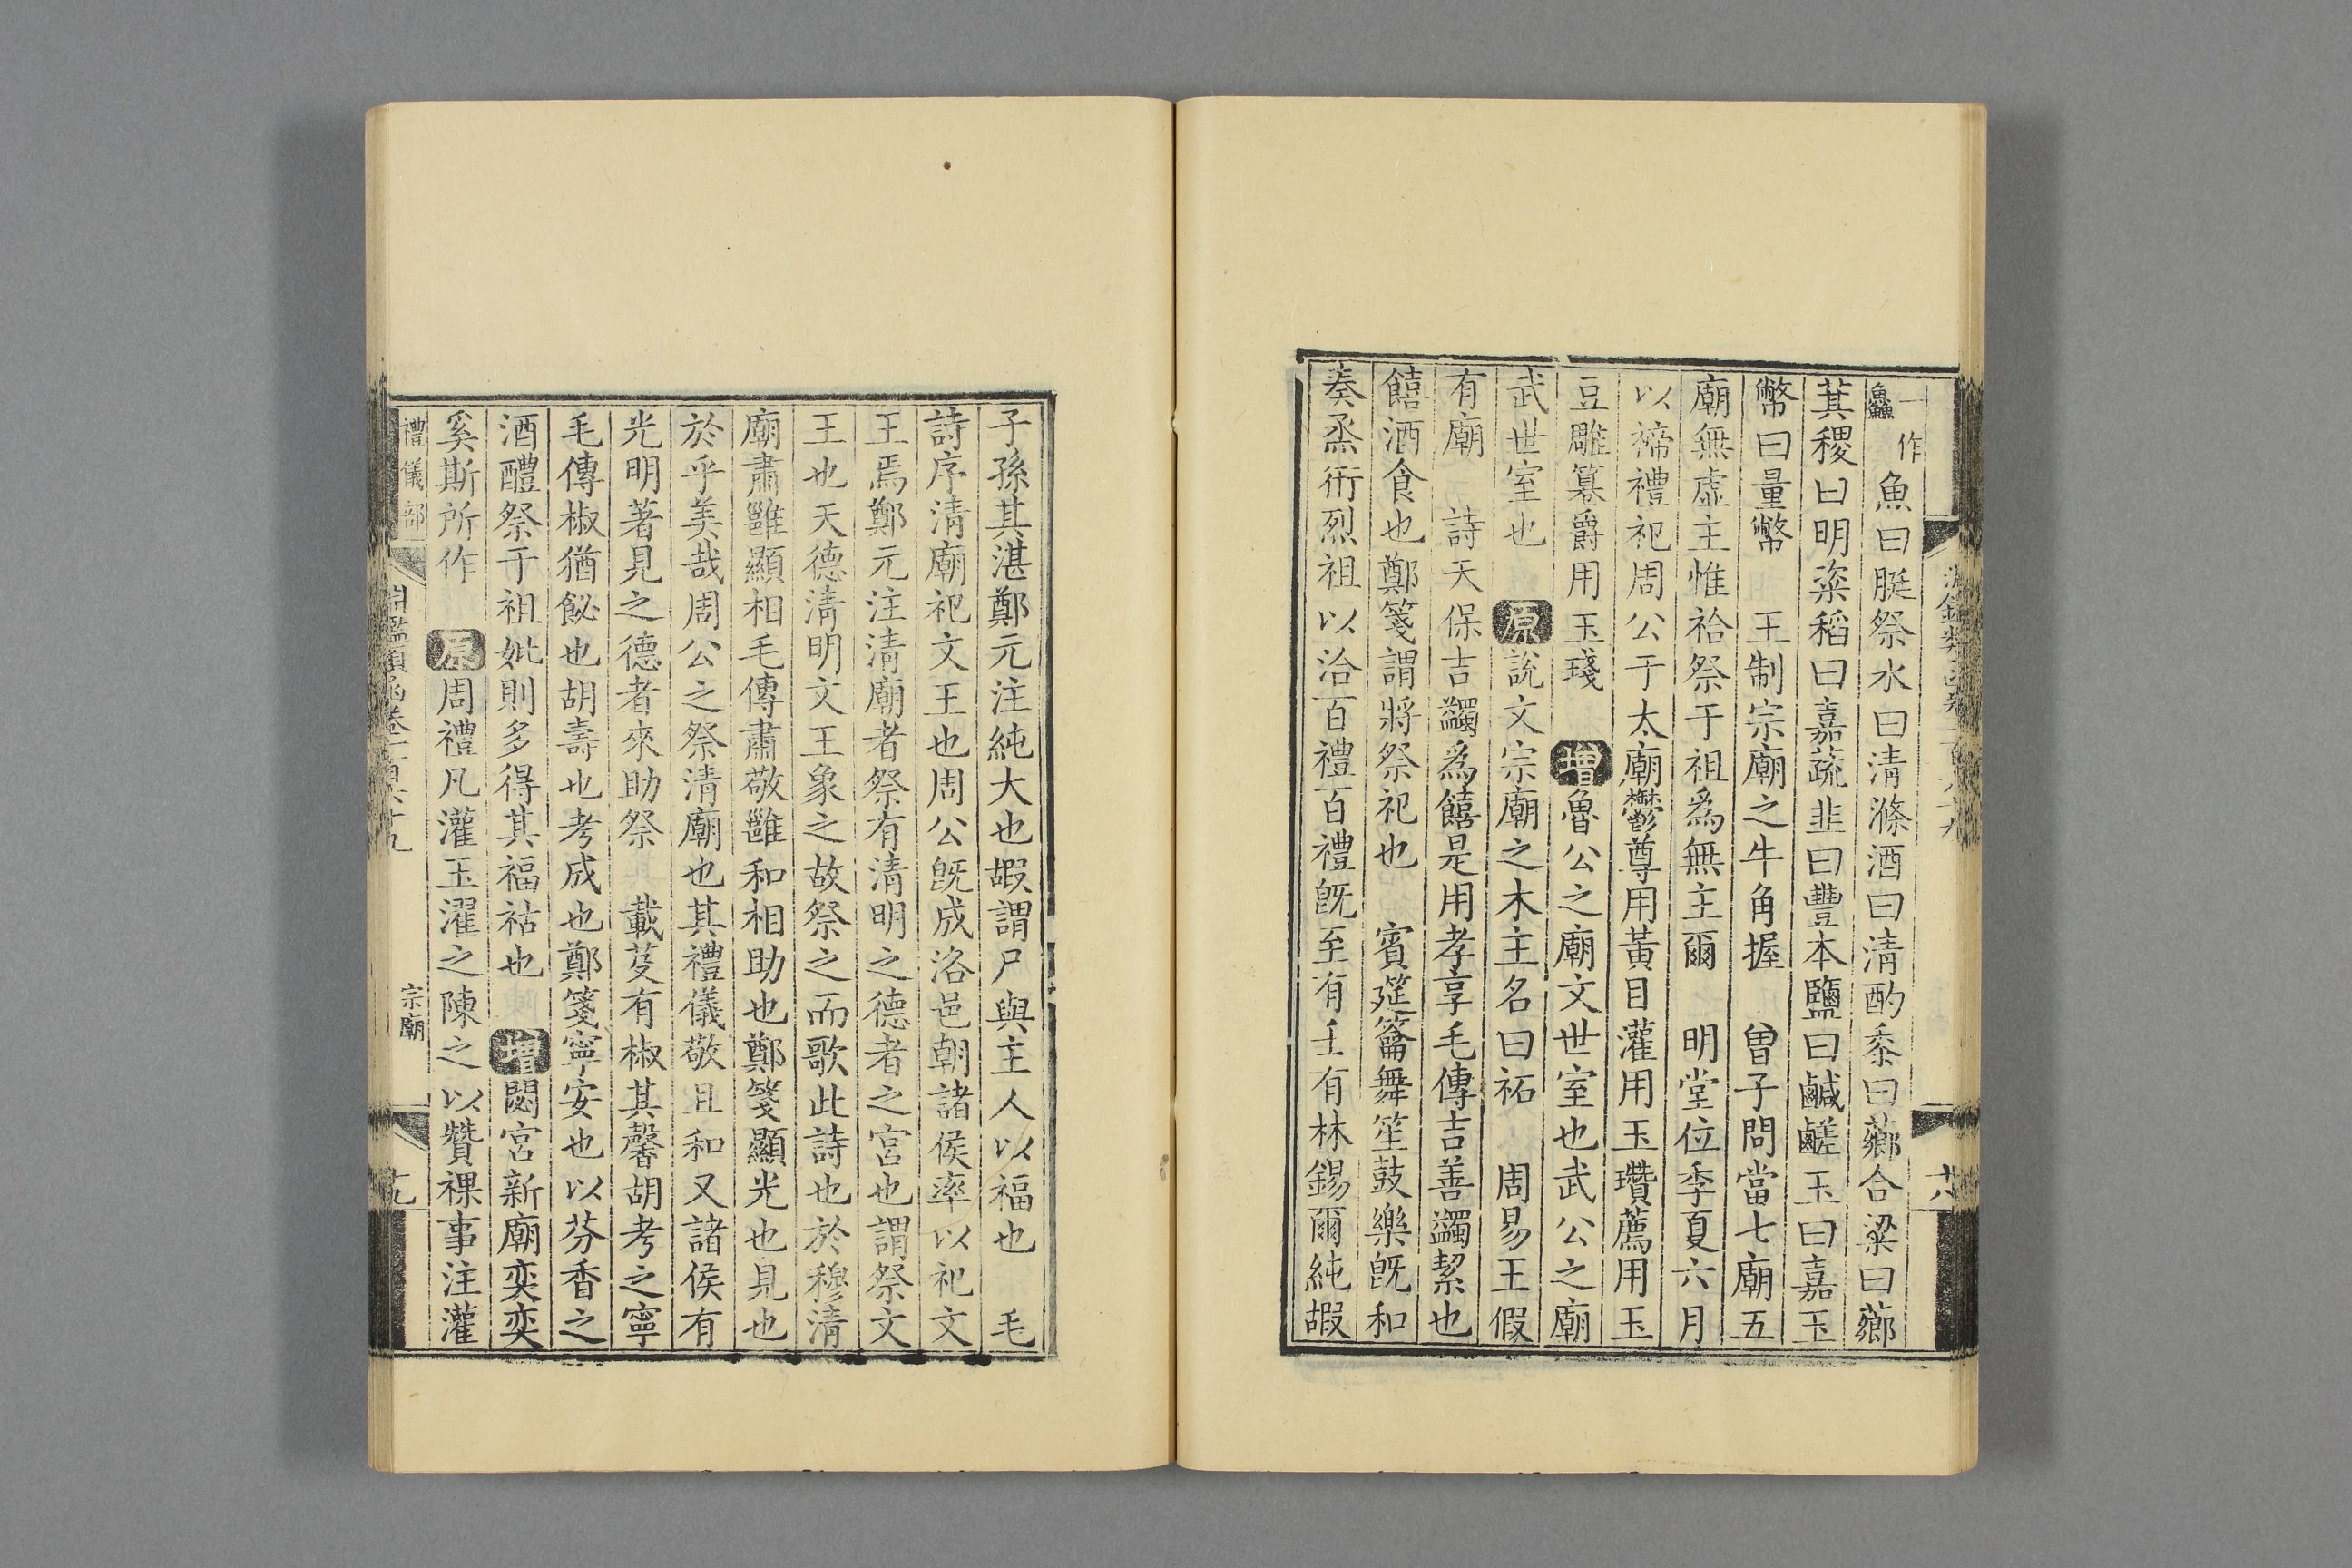 鱻一作魚曰脡祭水曰清滌酒曰清酌黍曰薌合粱曰薌
萁稷曰明粢稻曰嘉蔬韭曰豐本鹽曰鹹鹺玉曰嘉玉
幣曰量幣 王制宗廟之牛角握 曾子問當七廟五
廟無虛主惟祫祭于祖為無主爾 明堂位季夏六月
以禘禮祀周公于太廟鬱尊用黃目灌用玉瓚薦用玉
豆雕篹爵用玉琖 增魯公之廟文世室也武公之廟
武世室也 原說文宗廟之木主名曰祏 周易王假
有廟 詩天保吉蠲為饎是用孝享毛傳吉善蠲潔也
饎酒食也鄭箋謂將祭祀也 賓筵籥舞笙鼓樂旣和
奏烝衎烈祖以洽百禮百禮旣至有壬有林錫爾純嘏
子孫其湛鄭元注純大也嘏謂尸與主人以福也 毛
詩序清廟祀文王也周公旣成洛邑朝諸侯率以祀文
王焉鄭元注清廟者祭有清明之德者之宮也謂祭文
王也天德清明文王象之故祭之而歌此詩也於穆清
廟肅雝顯相毛傳肅敬雝和相助也鄭箋顯光也見也
於乎美哉周公之祭清廟也其禮儀敬且和又諸侯有
光明著見之德者來助祭 載芟有椒其馨胡考之寧
毛傳椒猶飶也胡壽也考成也鄭箋寧安也以芬香之
酒醴祭于祖妣則多得其福祜也 增閟宮新廟奕奕
奚斯所作 原周禮凡灌玉濯之陳之以贊祼事注灌
禮儀部 淵鑑類函卷一百六十九 宗廟 十九